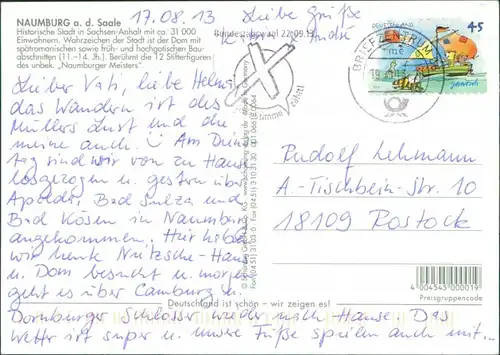 NAUMBURG a. d. Saale
Historische Stadt in Sachsen-Anhalt mit ca. 31 000
Einwohnern. Wahrzeichen der Stadt ist der Dom mit
spätromanischen sowie früh- und hochgotischen Bau-
abschnitten (11.-14. Jh.). Berühmt die 12 Stifterfiguren
des unbek. "Naumburger Meisters".
17.08.13
Liebe Grüße
André
Lieber Vati, liebe Helmi,
das Wandern ist des
Müllers Lust und die
meine auch. Am Diens
tag sind wir von zu Haus
losgezogen u. gestern über
Apolda, Bad Sulza und
Bad Kösen in Naumburg
angekommen. Hier haben
wir heute Nietzsche-Haus
u. Dom besucht u. morgen
geht es über Camburg u.
Dornburger Schlösser wieder nach Hause. Das
Wetter ist super u. unsere Füße spielen auch mit...
Bundestagswahl 22.09.13
Stimme zählt!
BRIEFZENTRUM
DEUTSCHLAND
45
Janosch
Rudolf Lehmann
A.-Tischbein-Str. 10
18109 Rostock
4 004545 000019
Preisgruppencode
Deutschland ist schön - wir zeigen es!